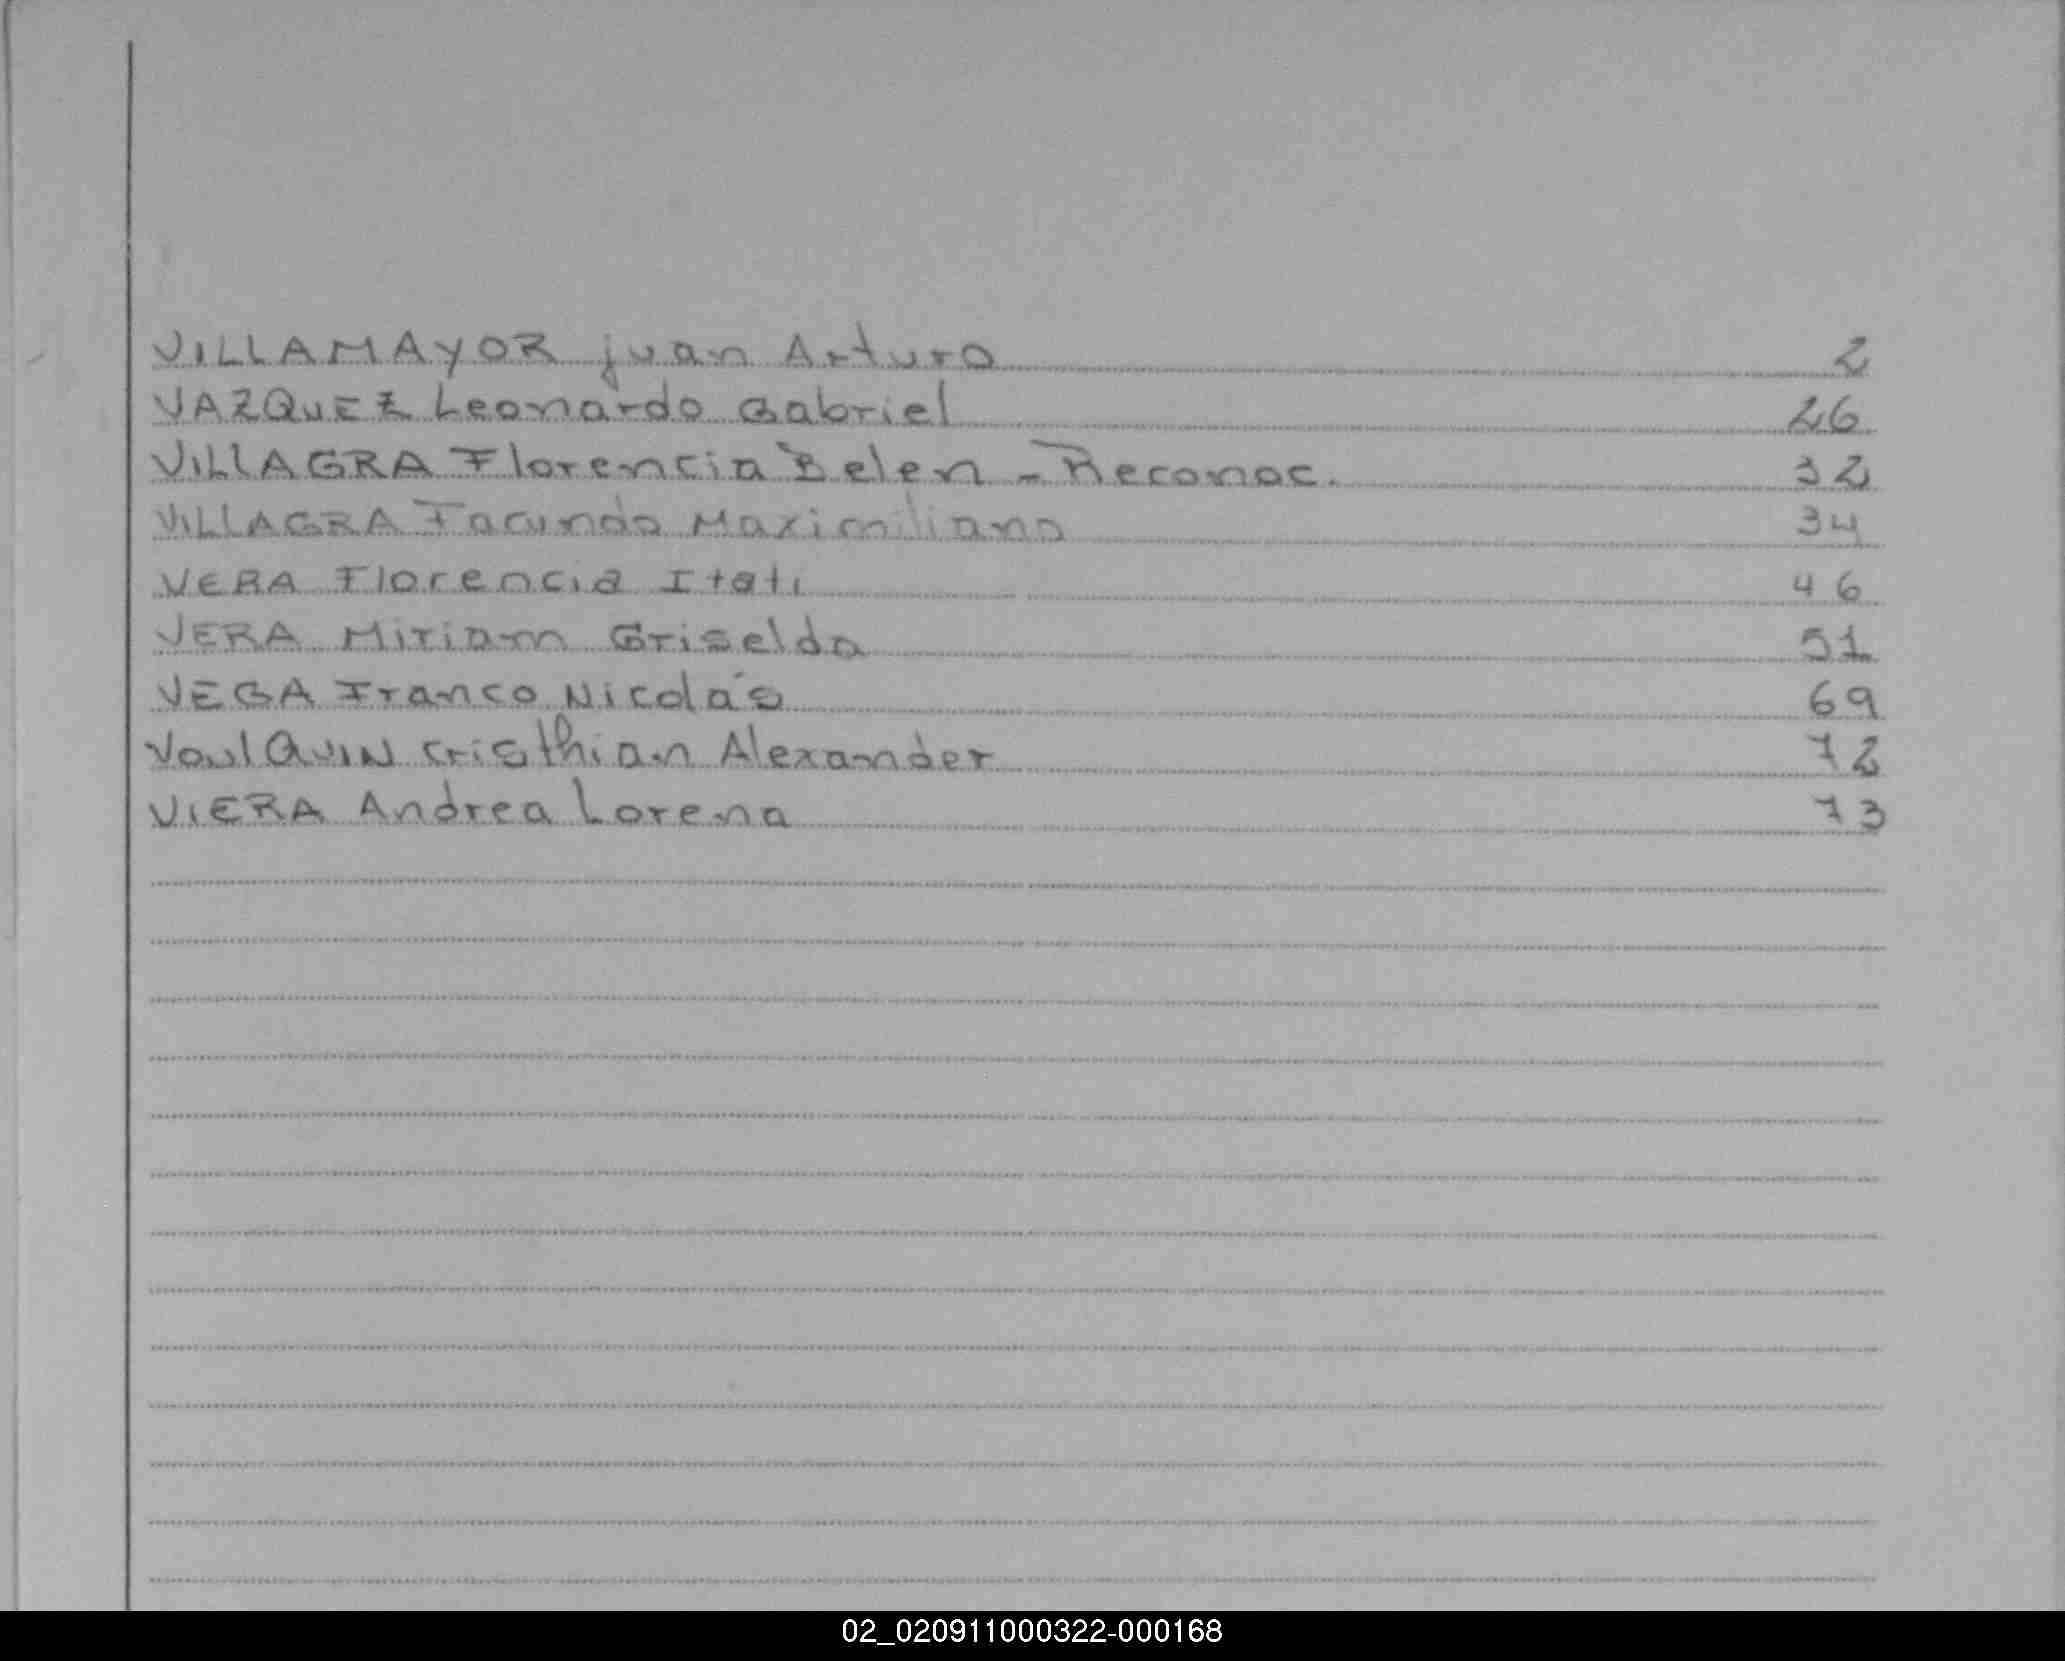 VILLAMAYOR juan Arturo 2
VAZQUEZ Leonardo Gabriel 26
VILLAGRA Florencia Belen - Reconoc. 32
VILLAGRA Facundo Maximiliano 34
VERA Florencia Itati 46
VERA Miriam Griselda 51
VEGA Franco Nicolás 69
VoulQuIN Cristhian Alexander 72
VIERA Andrea Lorena 73
02_020911000322-000168